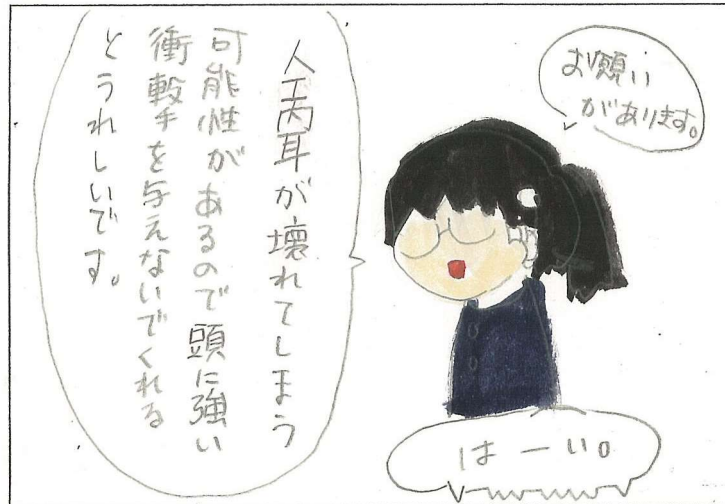 お願い
があります。
人工内耳が壊れてしまう
可能性があるので頭に強い
衝撃を与えないでくれる
とうれしいです。
はーい。